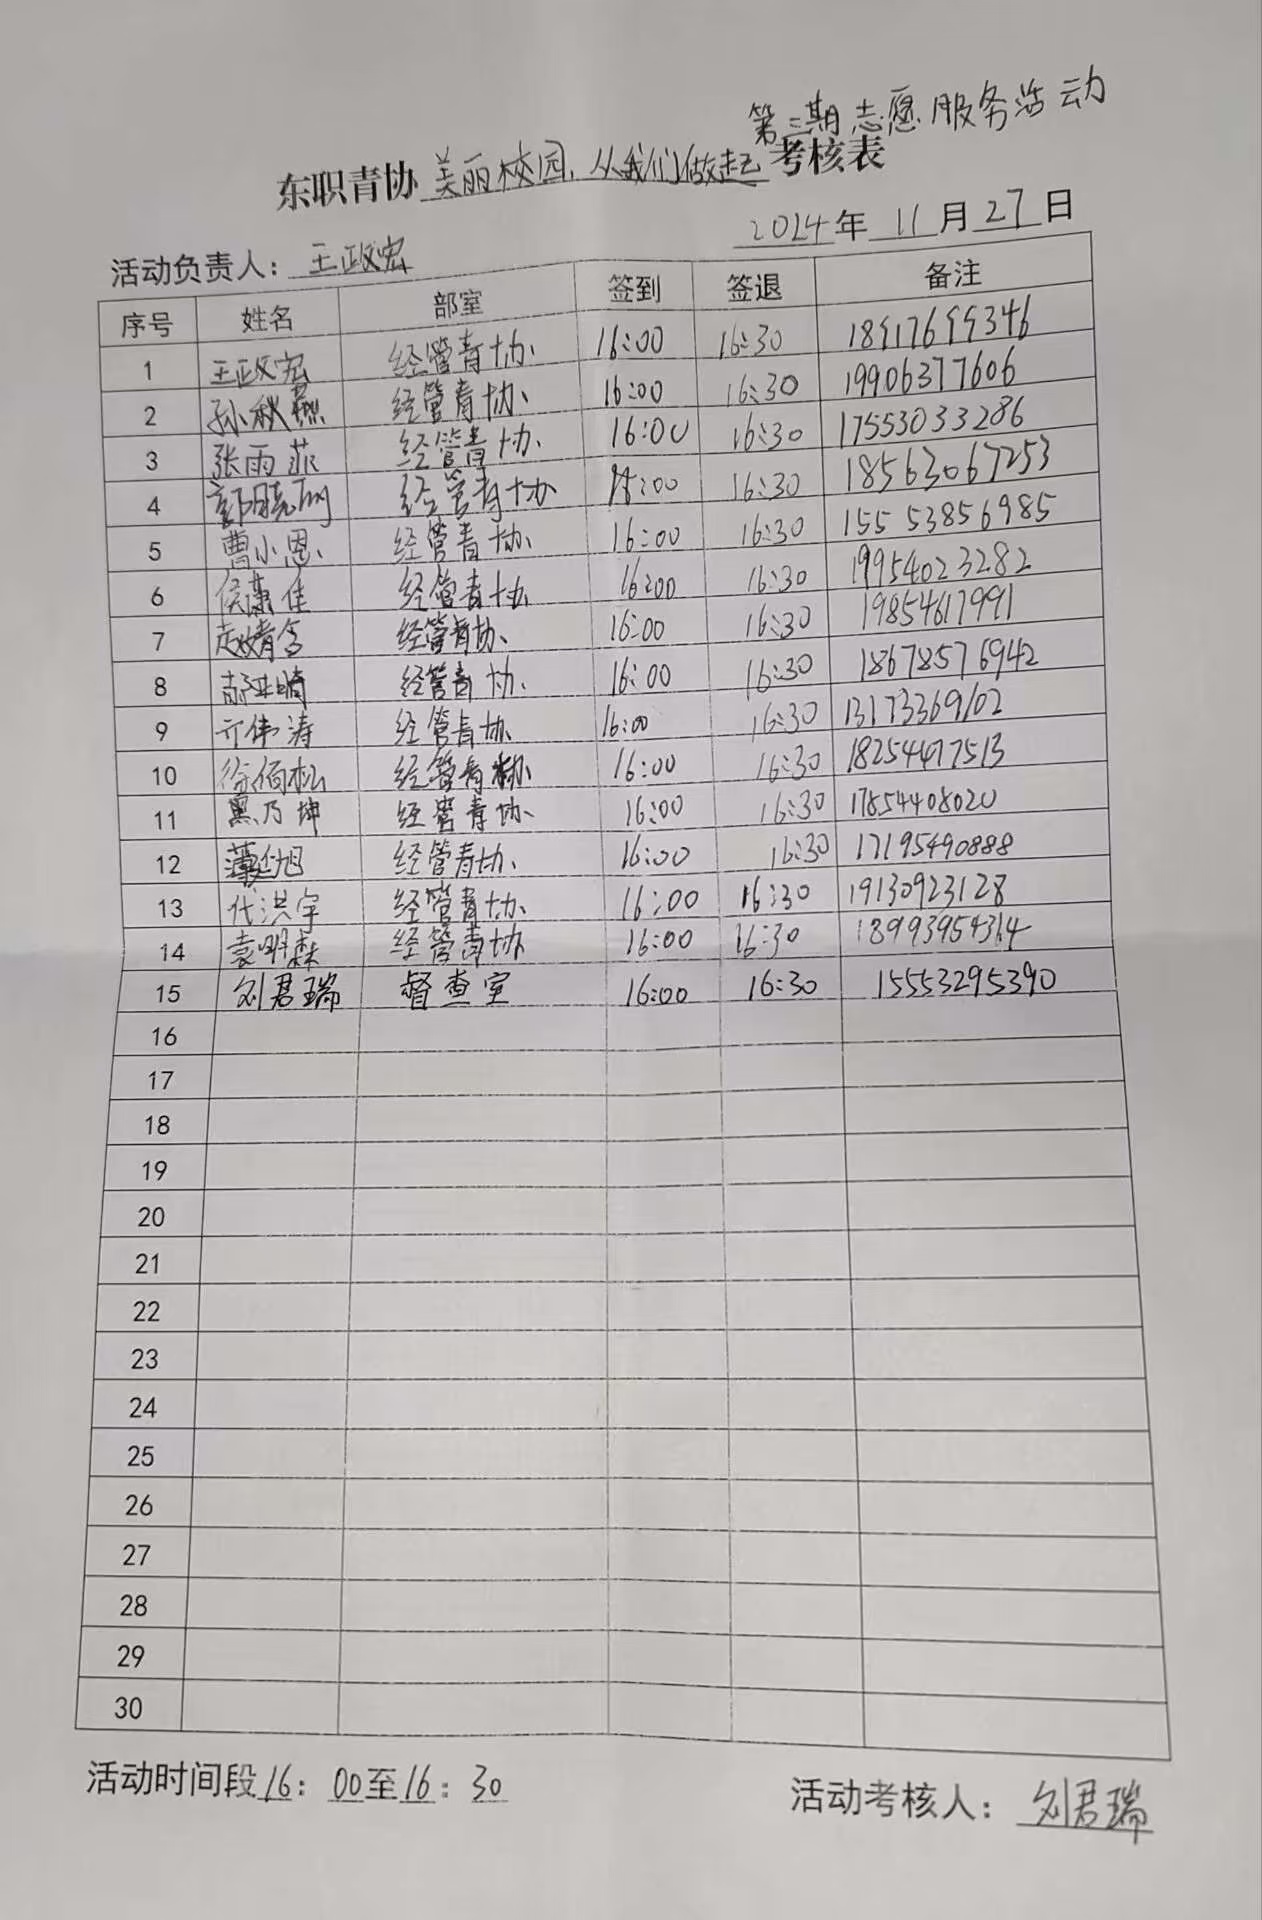 第三期志愿服务活动
东职青协美丽校园,从我们做起考核表
2024年11月27日
活动负责人:王政宏
序号 姓名 部室 签到 签退 备注
1 王政宏 经管青协 16:00 16:30 18917699346
2 孙秋燕 经管青协 16:00 16:30 19906377606
3 张雨菲 经管青协 16:00 16:30 17553033286
4 郭晓丽 经管青协 16:00 16:30 18563067253
5 曹小恩 经管青协 16:00 16:30 15553856985
6 侯萧佳 经管青协 16:00 16:30 19954023282
7 赵婧含 经管青协 16:00 16:30 19854617991
8 经管青协 16:00 16:30 18678576942
9 亓伟涛 经管青协 16:00 16:30 13173369102
10 徐佰松 经管青协 16:00 16:30 18254477513
11 黑乃坤 经管青协 16:00 16:30 17854408020
12 经管青协 16:00 16:30 17195490888
13 代洪宇 经管青协 16:00 16:30 19130923128
14 袁明森 经管青协 16:00 16:30
15 刘君瑞 督查室 16:00 16:30 15553295390
16
17
18
19
20
21
22
23
24
25
26
27
28
29
30
活动时间段16:00至16:30 活动考核人:刘君瑞